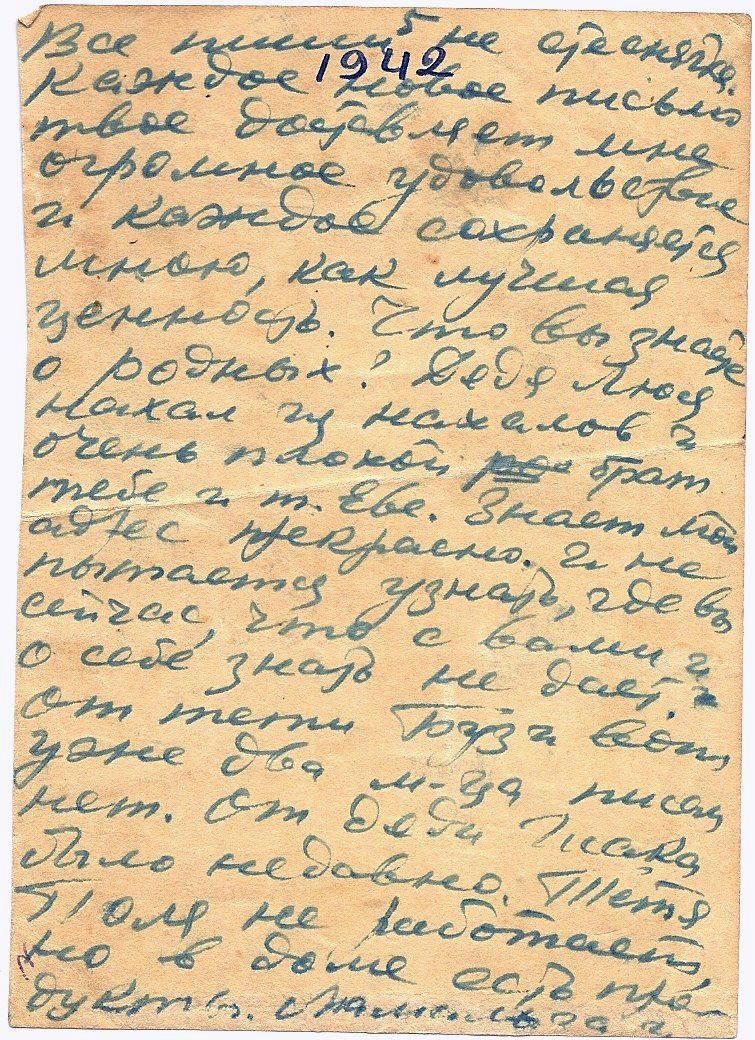 Все пиши не стесняйся.
5
1942
Каждое новое письмо
твое доставляет мне
огромное удовольствие
и каждое сохраняется
мною, как лучшая
ценность. Что вы знаете
о родных? Дядя Люся
нахал из нахалов и
очень плохой брат
тебе и т. Еве. Знает мой
адрес прекрасно. И не
пытается узнать, где вы
сейчас, что с вами и
о себе знать не дает.
От тети Бузи вот
уже два м-ца писем
нет. От дяди Исака
было недавно. Тетя
Поля не работает,
но в доме есть про-
дукты.